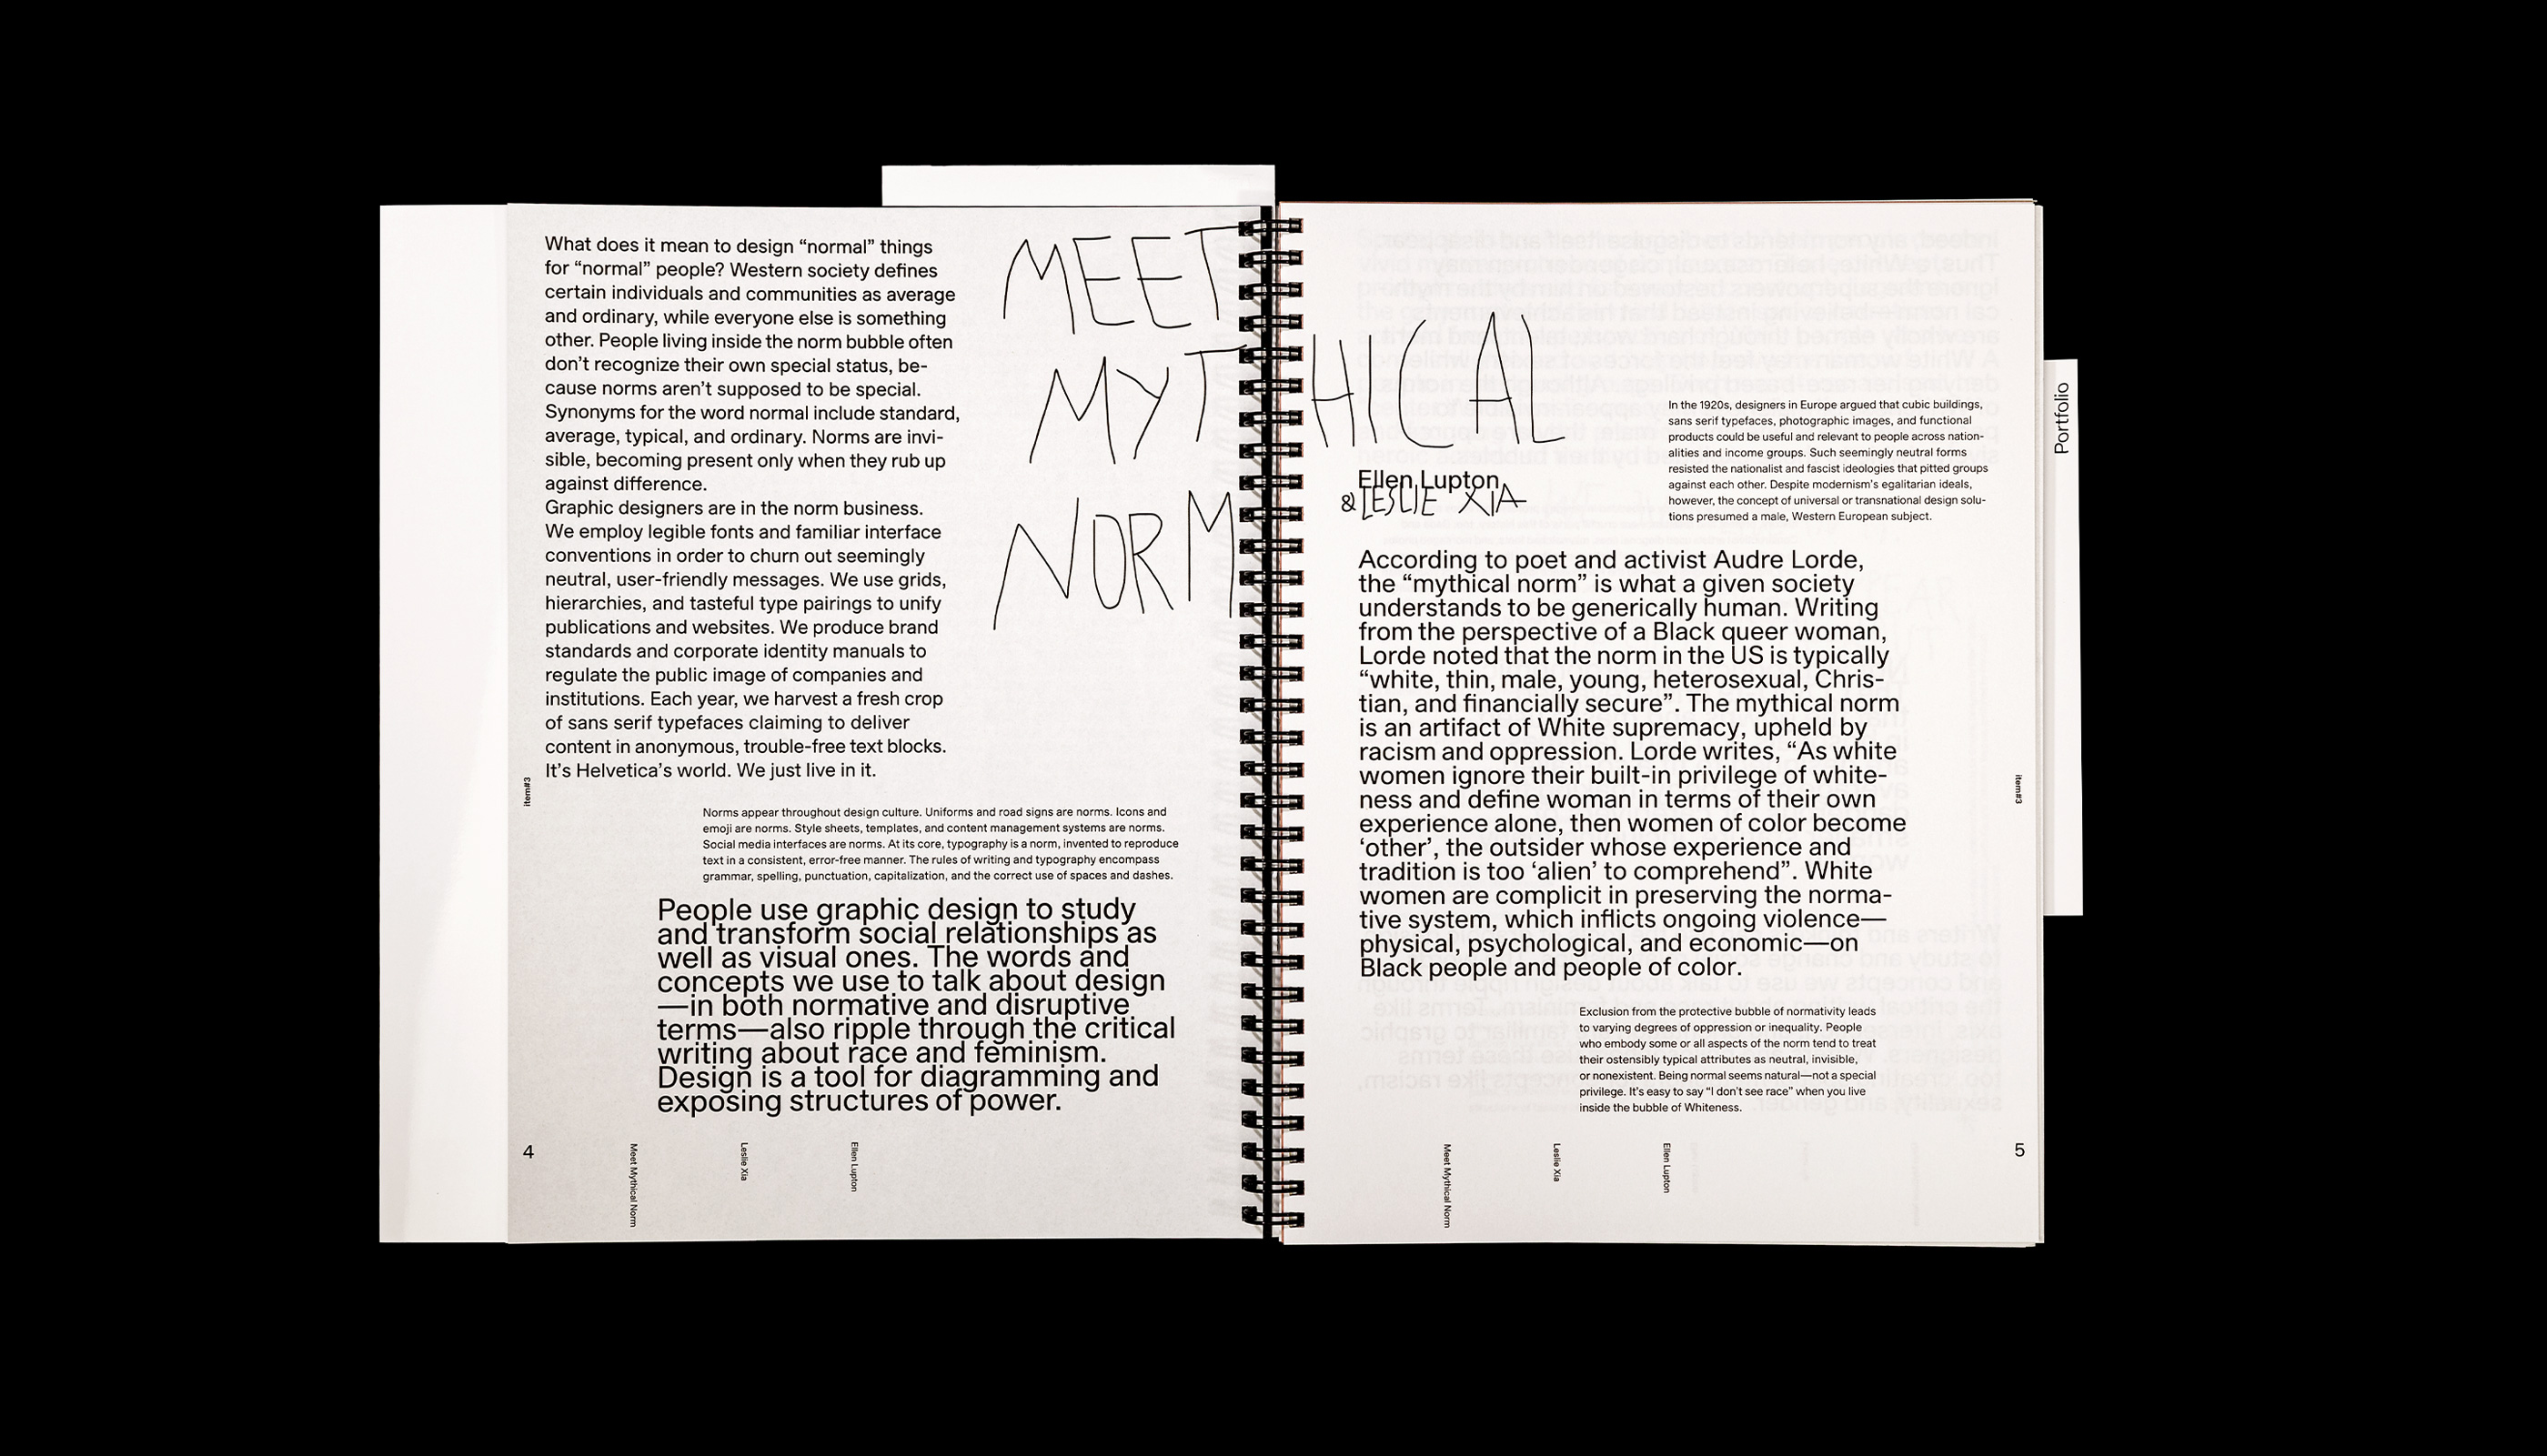 What does it mean to design “normal” things
for “normal” people? Western society defines
certain individuals and communities as average
and ordinary, while everyone else is something
other. People living inside the norm bubble often
don’t recognize their own special status, be-
cause norms aren’t supposed to be special.
Synonyms for the word normal include standard,
average, typical, and ordinary. Norms are invi-
sible, becoming present only when they rub up
against difference.
Graphic designers are in the norm business.
We employ legible fonts and familiar interface
conventions in order to churn out seemingly
neutral, user-friendly messages. We use grids,
hierarchies, and tasteful type pairings to unify
publications and websites. We produce brand
standards and corporate identity manuals to
regulate the public image of companies and
institutions. Each year, we harvest a fresh crop
of sans serif typefaces claiming to deliver
content in anonymous, trouble-free text blocks.
It’s Helvetica’s world. We just live in it.
item#3
Norms appear throughout design culture. Uniforms and road signs are norms. Icons and
emoji are norms. Style sheets, templates, and content management systems are norms.
Social media interfaces are norms. At its core, typography is a norm, invented to reproduce
text in a consistent, error-free manner. The rules of writing and typography encompass
grammar, spelling, punctuation, capitalization, and the correct use of spaces and dashes.
People use graphic design to study
and transform social relationships as
well as visual ones. The words and
concepts we use to talk about design
—in both normative and disruptive
terms—also ripple through the critical
writing about race and feminism.
Design is a tool for diagramming and
exposing structures of power.
4
Meet Mythical Norm
Leslie Xia
Ellen Lupton
MEET
MYTHICAL
NORM
Ellen Lupton
& LESLIE XIA
In the 1920s, designers in Europe argued that cubic buildings,
sans serif typefaces, photographic images, and functional
products could be useful and relevant to people across nation-
alities and income groups. Such seemingly neutral forms
resisted the nationalist and fascist ideologies that pitted groups
against each other. Despite modernism’s egalitarian ideals,
however, the concept of universal or transnational design solu-
tions presumed a male, Western European subject.
Portfolio
According to poet and activist Audre Lorde,
the “mythical norm” is what a given society
understands to be generically human. Writing
from the perspective of a Black queer woman,
Lorde noted that the norm in the US is typically
“white, thin, male, young, heterosexual, Chris-
tian, and financially secure”. The mythical norm
is an artifact of White supremacy, upheld by
racism and oppression. Lorde writes, “As white
women ignore their built-in privilege of white-
ness and define woman in terms of their own
experience alone, then women of color become
‘other’, the outsider whose experience and
tradition is too ‘alien’ to comprehend”. White
women are complicit in preserving the norma-
tive system, which inflicts ongoing violence—
physical, psychological, and economic—on
Black people and people of color.
item#3
Exclusion from the protective bubble of normativity leads
to varying degrees of oppression or inequality. People
who embody some or all aspects of the norm tend to treat
their ostensibly typical attributes as neutral, invisible,
or nonexistent. Being normal seems natural—not a special
privilege. It’s easy to say “I don’t see race” when you live
inside the bubble of Whiteness.
Meet Mythical Norm
Leslie Xia
Ellen Lupton
5